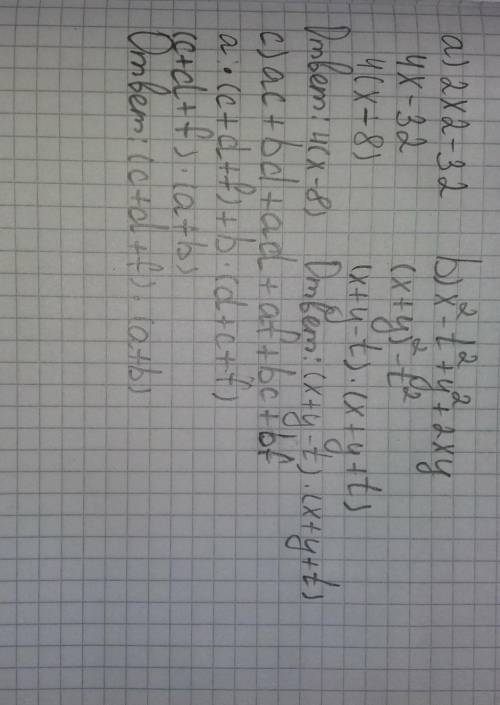 a) 2x2-32
4x-32
4(x-8)
Ответ: 4(x-8)
b) x²-t²+y²+2xy
(x+y)²-t²
(x+y-t)·(x+y+t)
Ответ: (x+y-t)·(x+y+t)
c) ac+bd+ad+af+bc+bf
a·(c+d+f)+b·(d+c+f)
(c+d+f)·(a+b)
Ответ: (c+d+f)·(a+b)